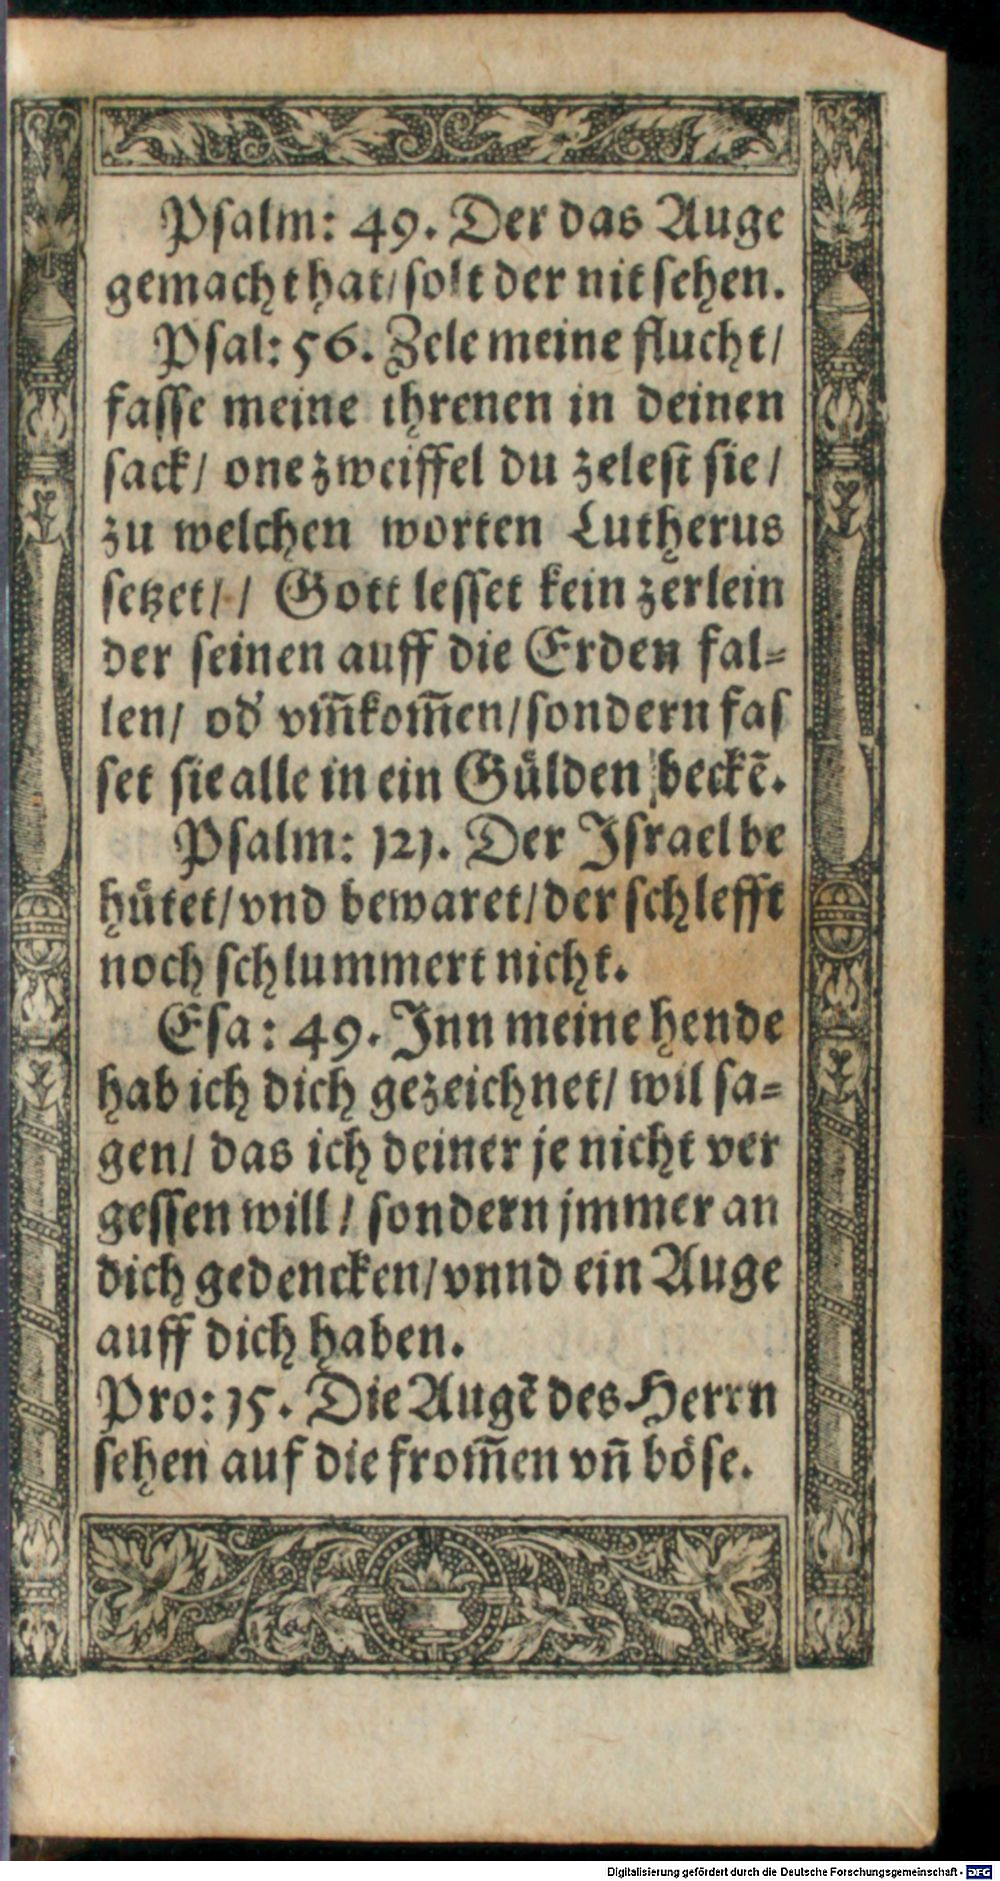 Psalm: 49. Der das Auge
gemacht hat/ solt der nit sehen.
Psal: 56. Zele meine flucht/
fasse meine threnen in deinen
sack/ one zweiffel du zelest sie/
zu welchen worten Lutherus
setzet// Gott lesset kein zerlein
der seinen auff die Erden fal⸗
len/ od̕ vm̄kom̄en/ sondern fas
set sie alle in ein Guͤlden beckē.
Psalm: 121. Der Israel be
huͤtet/ vnd bewaret/ der schlefft
noch schlummert nicht.
Esa: 49. Inn meine hende
hab ich dich gezeichnet/ wil sa⸗
gen/ das ich deiner je nicht ver
gessen will/ sondern jmmer an
dich gedencken/ vnnd ein Auge
auff dich haben.
Pro: 15. Die Augē des Herrn
sehen auf die from̄en vn̄ boͤse.
Digitalisierung gefördert durch die Deutsche Forschungsgemeinschaft - DFG